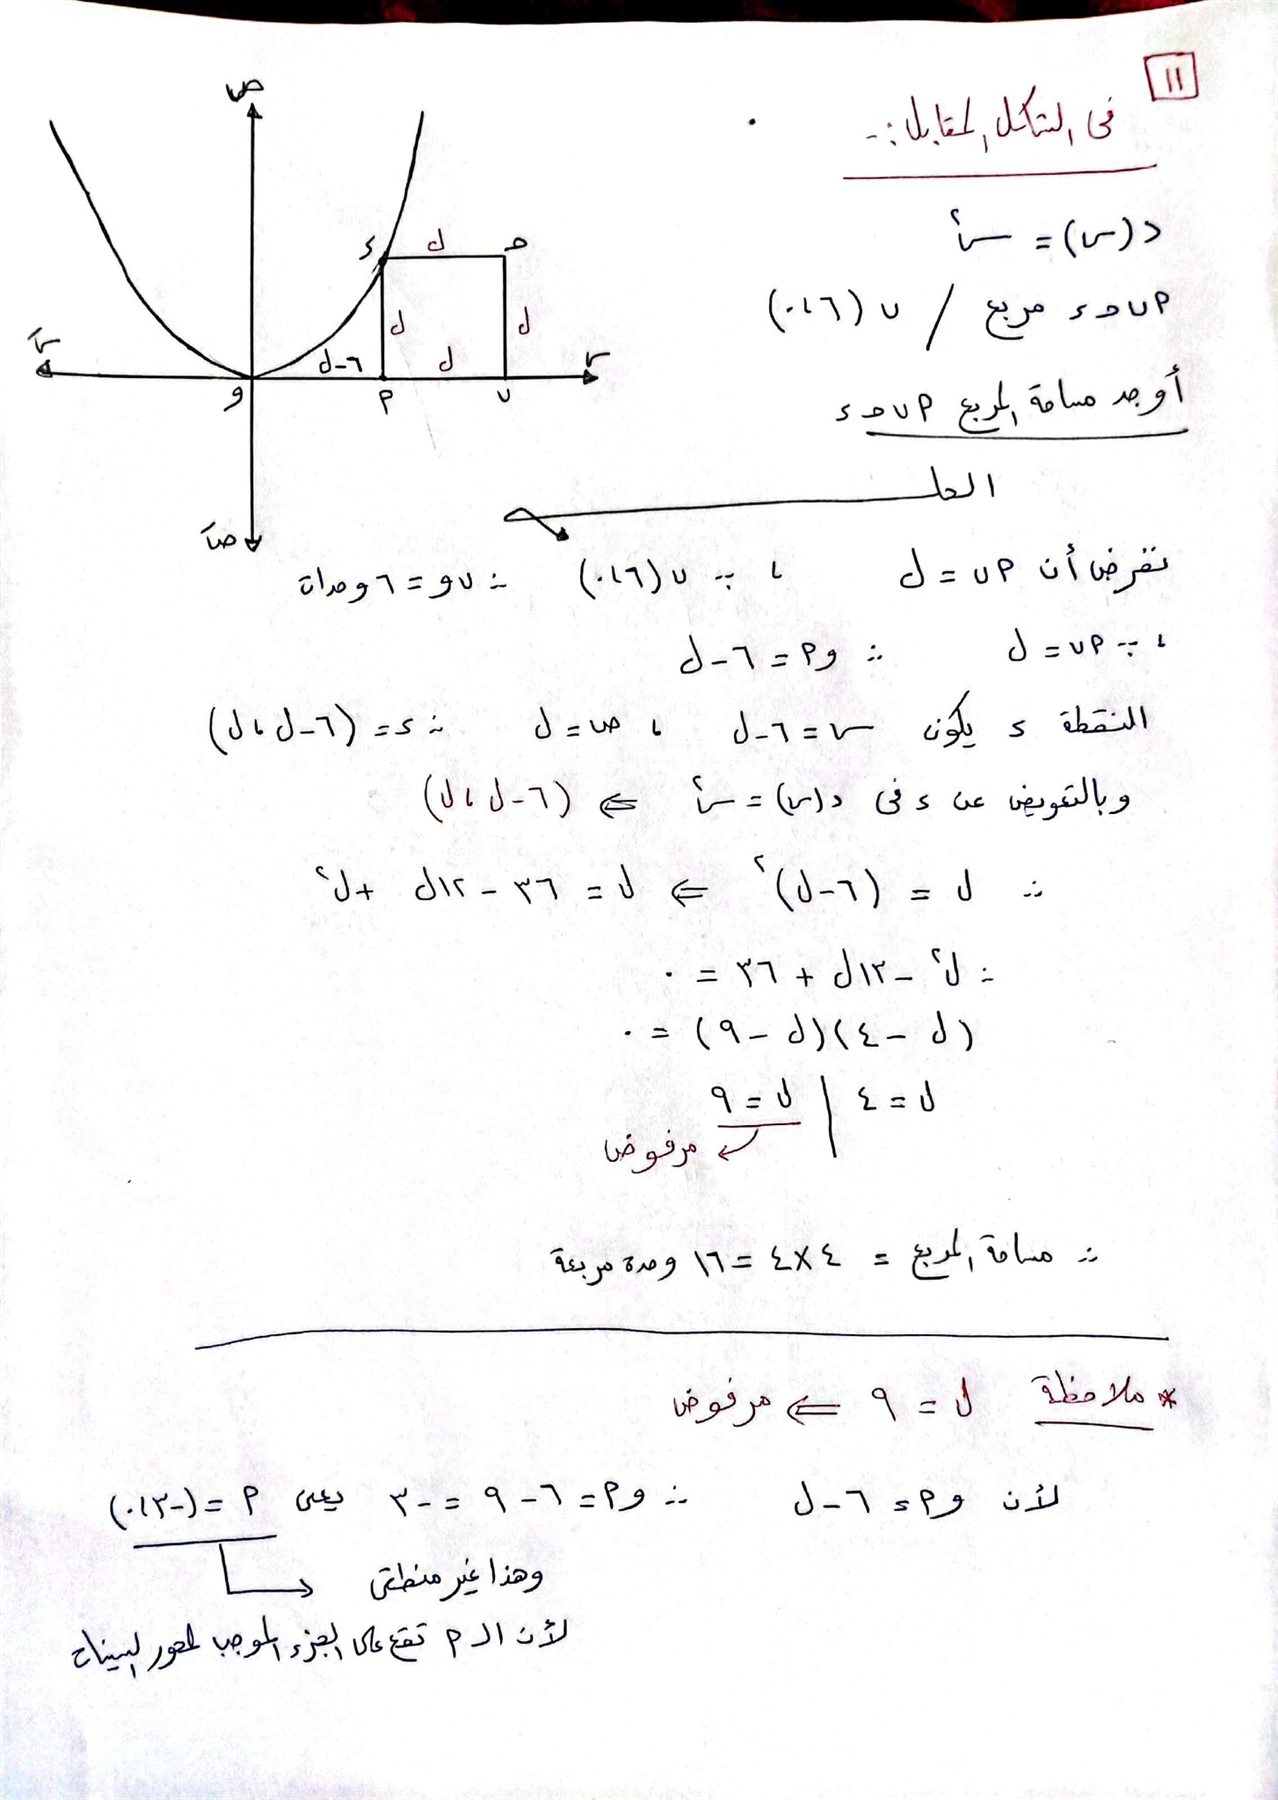 ١١
فى الشكل المقابل :-
د(س) = س²
أ ب حـ ء مربع / ب (٦، ٠)
أوجد مساحة المربع أ ب حـ ء
ص
ء ل حـ
ل ل
سَ ٦-ل ل س
و أ ب
صَ
الحل
نفرض أن أ ب = ل ، ∵ ب (٦، ٠) ∴ ب و = ٦ وحدات
، ∵ أ ب = ل ∴ و أ = ٦ - ل
النقطة ء يكون س = ٦ - ل ، ص = ل ∴ ء = (٦ - ل، ل)
وبالتعويض عن ء فى د(س) = س² ⇐ (٦ - ل، ل)
∴ ل = (٦ - ل)² ⇐ ل = ٣٦ - ١٢ل + ل²
∴ ل² - ١٣ل + ٣٦ = ٠
(ل - ٤)(ل - ٩) = ٠
ل = ٤ | ل = ٩
مرفوض
∴ مساحة المربع = ٤ × ٤ = ١٦ وحدة مربعة
* ملاحظة ل = ٩ ⇐ مرفوض
لأن و أ = ٦ - ل ∴ و أ = ٦ - ٩ = -٣ يعنى أ = (-٣، ٠)
وهذا غير منطقى
لأن الـ أ تقع على الجزء الموجب لمحور السينات